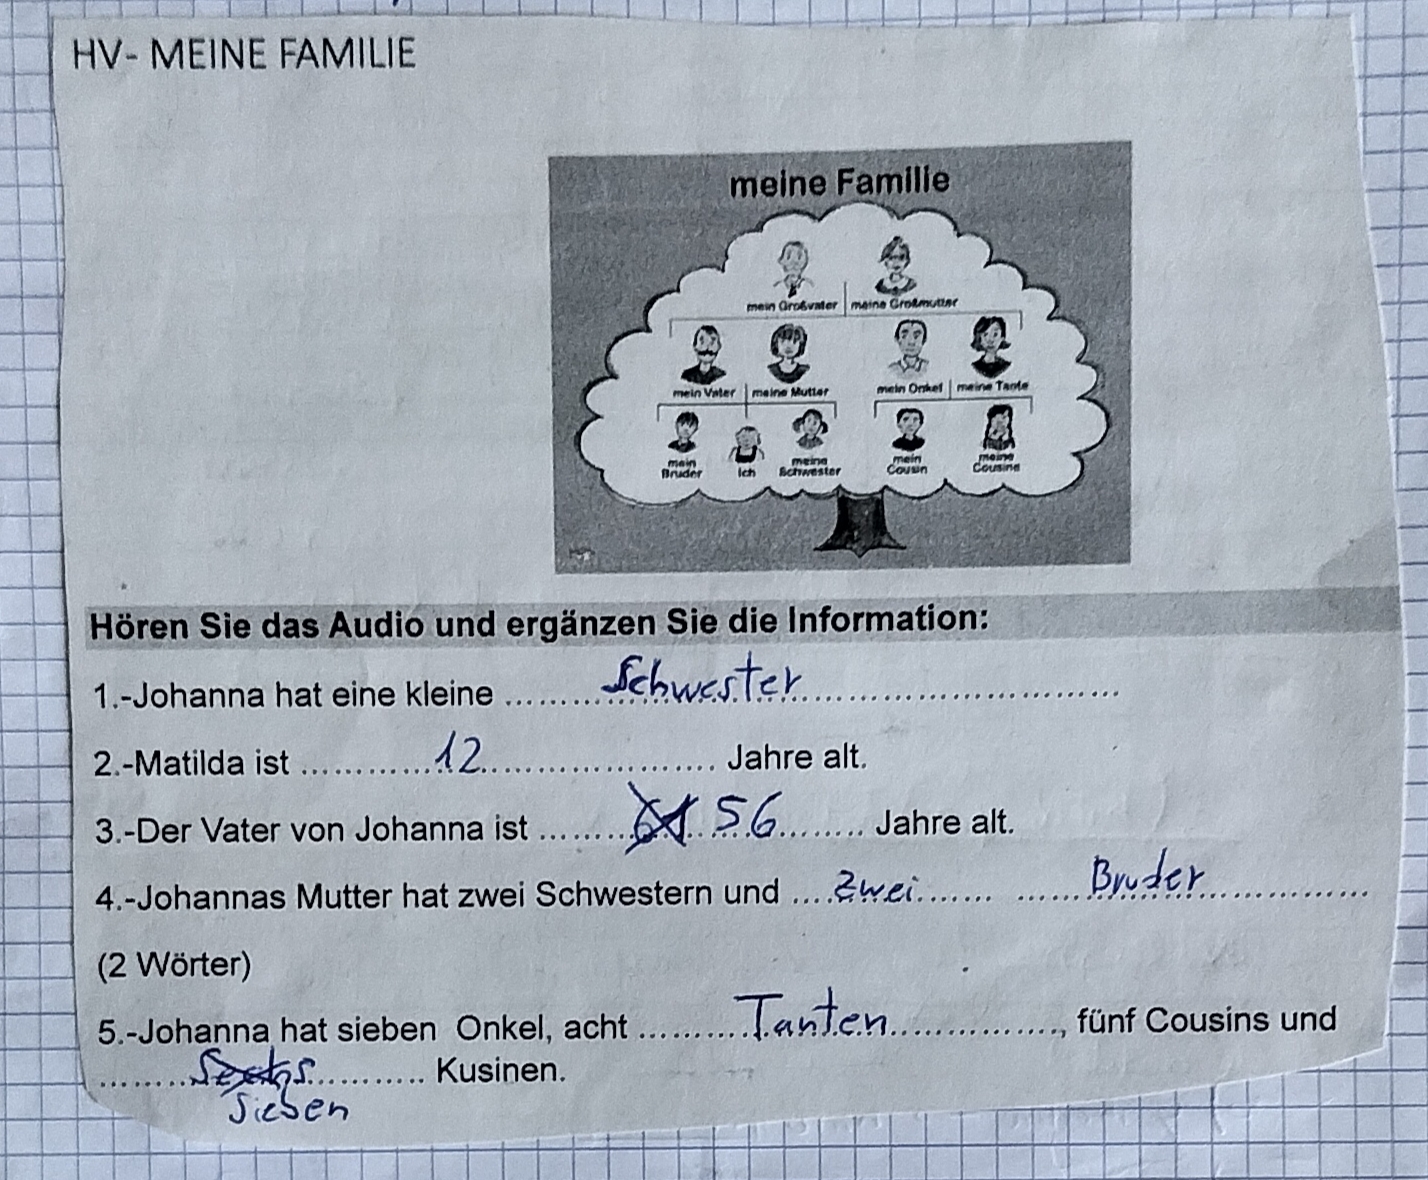 HV- MEINE FAMILIE
meine Familie
mein Großvater meine Großmutter
mein Vater meine Mutter mein Onkel meine Tante
mein Bruder Ich meine Schwester mein Cousin meine Cousine
Hören Sie das Audio und ergänzen Sie die Information:
1.-Johanna hat eine kleine ........Schwester................................
2.-Matilda ist ............12..................... Jahre alt.
3.-Der Vater von Johanna ist ........61..56........ Jahre alt.
4.-Johannas Mutter hat zwei Schwestern und ....zwei....... ......Bruder...............
(2 Wörter)
5.-Johanna hat sieben Onkel, acht ..........Tanten................, fünf Cousins und
........Sechs........... Kusinen.
Sieben